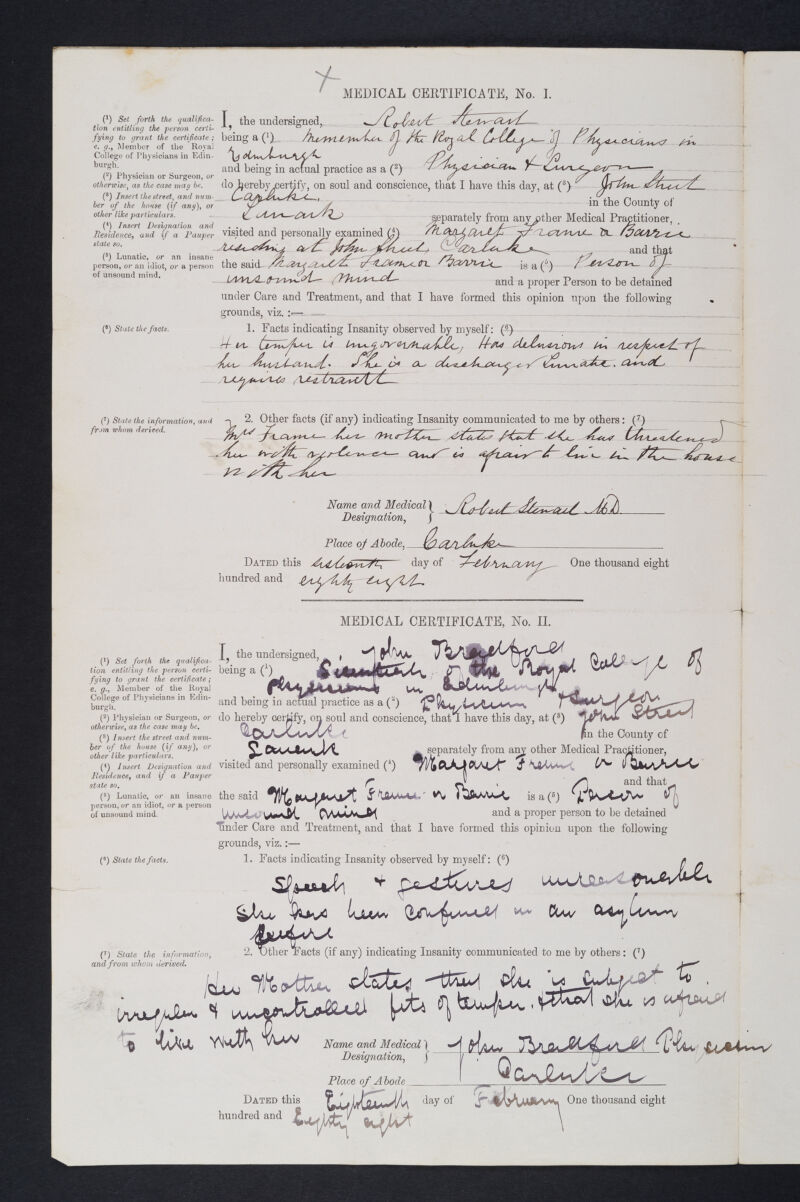 MEDICAL CERTIFICATE, No. I.
(1) Set forth the qualifica-
tion entitling the person certi-
fying to grant the certificate;
e. g., Member of the Royal
College of Physicians in Edin-
burgh.
(2) Physician or Surgeon, or
otherwise, as the case may be.
(3) Insert the street, and num-
ber of the house (if any), or
other like particulars.
(4) Insert Designation and
Residence, and if a Pauper
state so.
(5) Lunatic, or an insane
person, or an idiot, or a person
of unsound mind.
I, the undersigned, Robert Stewart
being a (1) Memember of the Royal College of Physicians in
Edinburgh
and being in actual practice as a (2) Physician & Surgeon
do hereby certify, on soul and conscience, that I have this day, at (3) John Street
Carluke, in the County of
Lanark separately from any other Medical Practitioner,
visited and personally examined (4) Margaret Frame or Barrie
residing at John Street Carluke and that
the said Margaret Frame or Barrie is a (5) Person of
unsound mind and a proper Person to be detained
under Care and Treatment, and that I have formed this opinion upon the following
grounds, viz. :—
(6) State the facts.
1. Facts indicating Insanity observed by myself: (6)
Her temper is ungovernable, Has delusions in respect of
her husband. She is a discharged Lunatic and
requires restraint
(7) State the information, and
from whom derived.
2. Other facts (if any) indicating Insanity communicated to me by others: (7)
Mrs Frame her mother states that she has threatened
her with violence and is afraid to live in the house
with her
Name and Medical
Designation, } Robert Stewart M.D.
Place of Abode, Carluke
DATED this sixteenth day of February One thousand eight
hundred and eighty eight
MEDICAL CERTIFICATE, No. II.
(1) Set forth the qualifica-
tion entitling the person certi-
fying to grant the certificate;
e. g., Member of the Royal
College of Physicians in Edin-
burgh.
(2) Physician or Surgeon, or
otherwise, as the case may be.
(3) Insert the street and num-
ber of the house (if any), or
other like particulars.
(4) Insert Designation and
Residence, and if a Pauper
state so.
(5) Lunatic, or an insane
person, or an idiot, or a person
of unsound mind.
I, the undersigned, John Bradford
being a (1) Licentiate of the Royal College of
Physicians in Edinburgh
and being in actual practice as a (2) Physician & Surgeon
do hereby certify, on soul and conscience, that I have this day, at (3) John Street
Carluke in the County of
Lanark separately from any other Medical Practitioner,
visited and personally examined (4) Margaret Frame or Barrie
and that
the said Margaret Frame or Barrie is a (5) Person of
unsound mind and a proper person to be detained
under Care and Treatment, and that I have formed this opinion upon the following
grounds, viz. :—
(6) State the facts.
1. Facts indicating Insanity observed by myself: (6)
Speech & gestures unreasonable
She has been confined in an asylum
before
(7) State the information,
and from whom derived.
2. Other Facts (if any) indicating Insanity communicated to me by others: (7)
Her Mother states that she is subject to
irregular & uncontrolled fits of temper, & that she is afraid
to live with her
Name and Medical
Designation, } John Bradford Physician
Place of Abode Carluke
DATED this Eighteenth day of February One thousand eight
hundred and Eighty eight